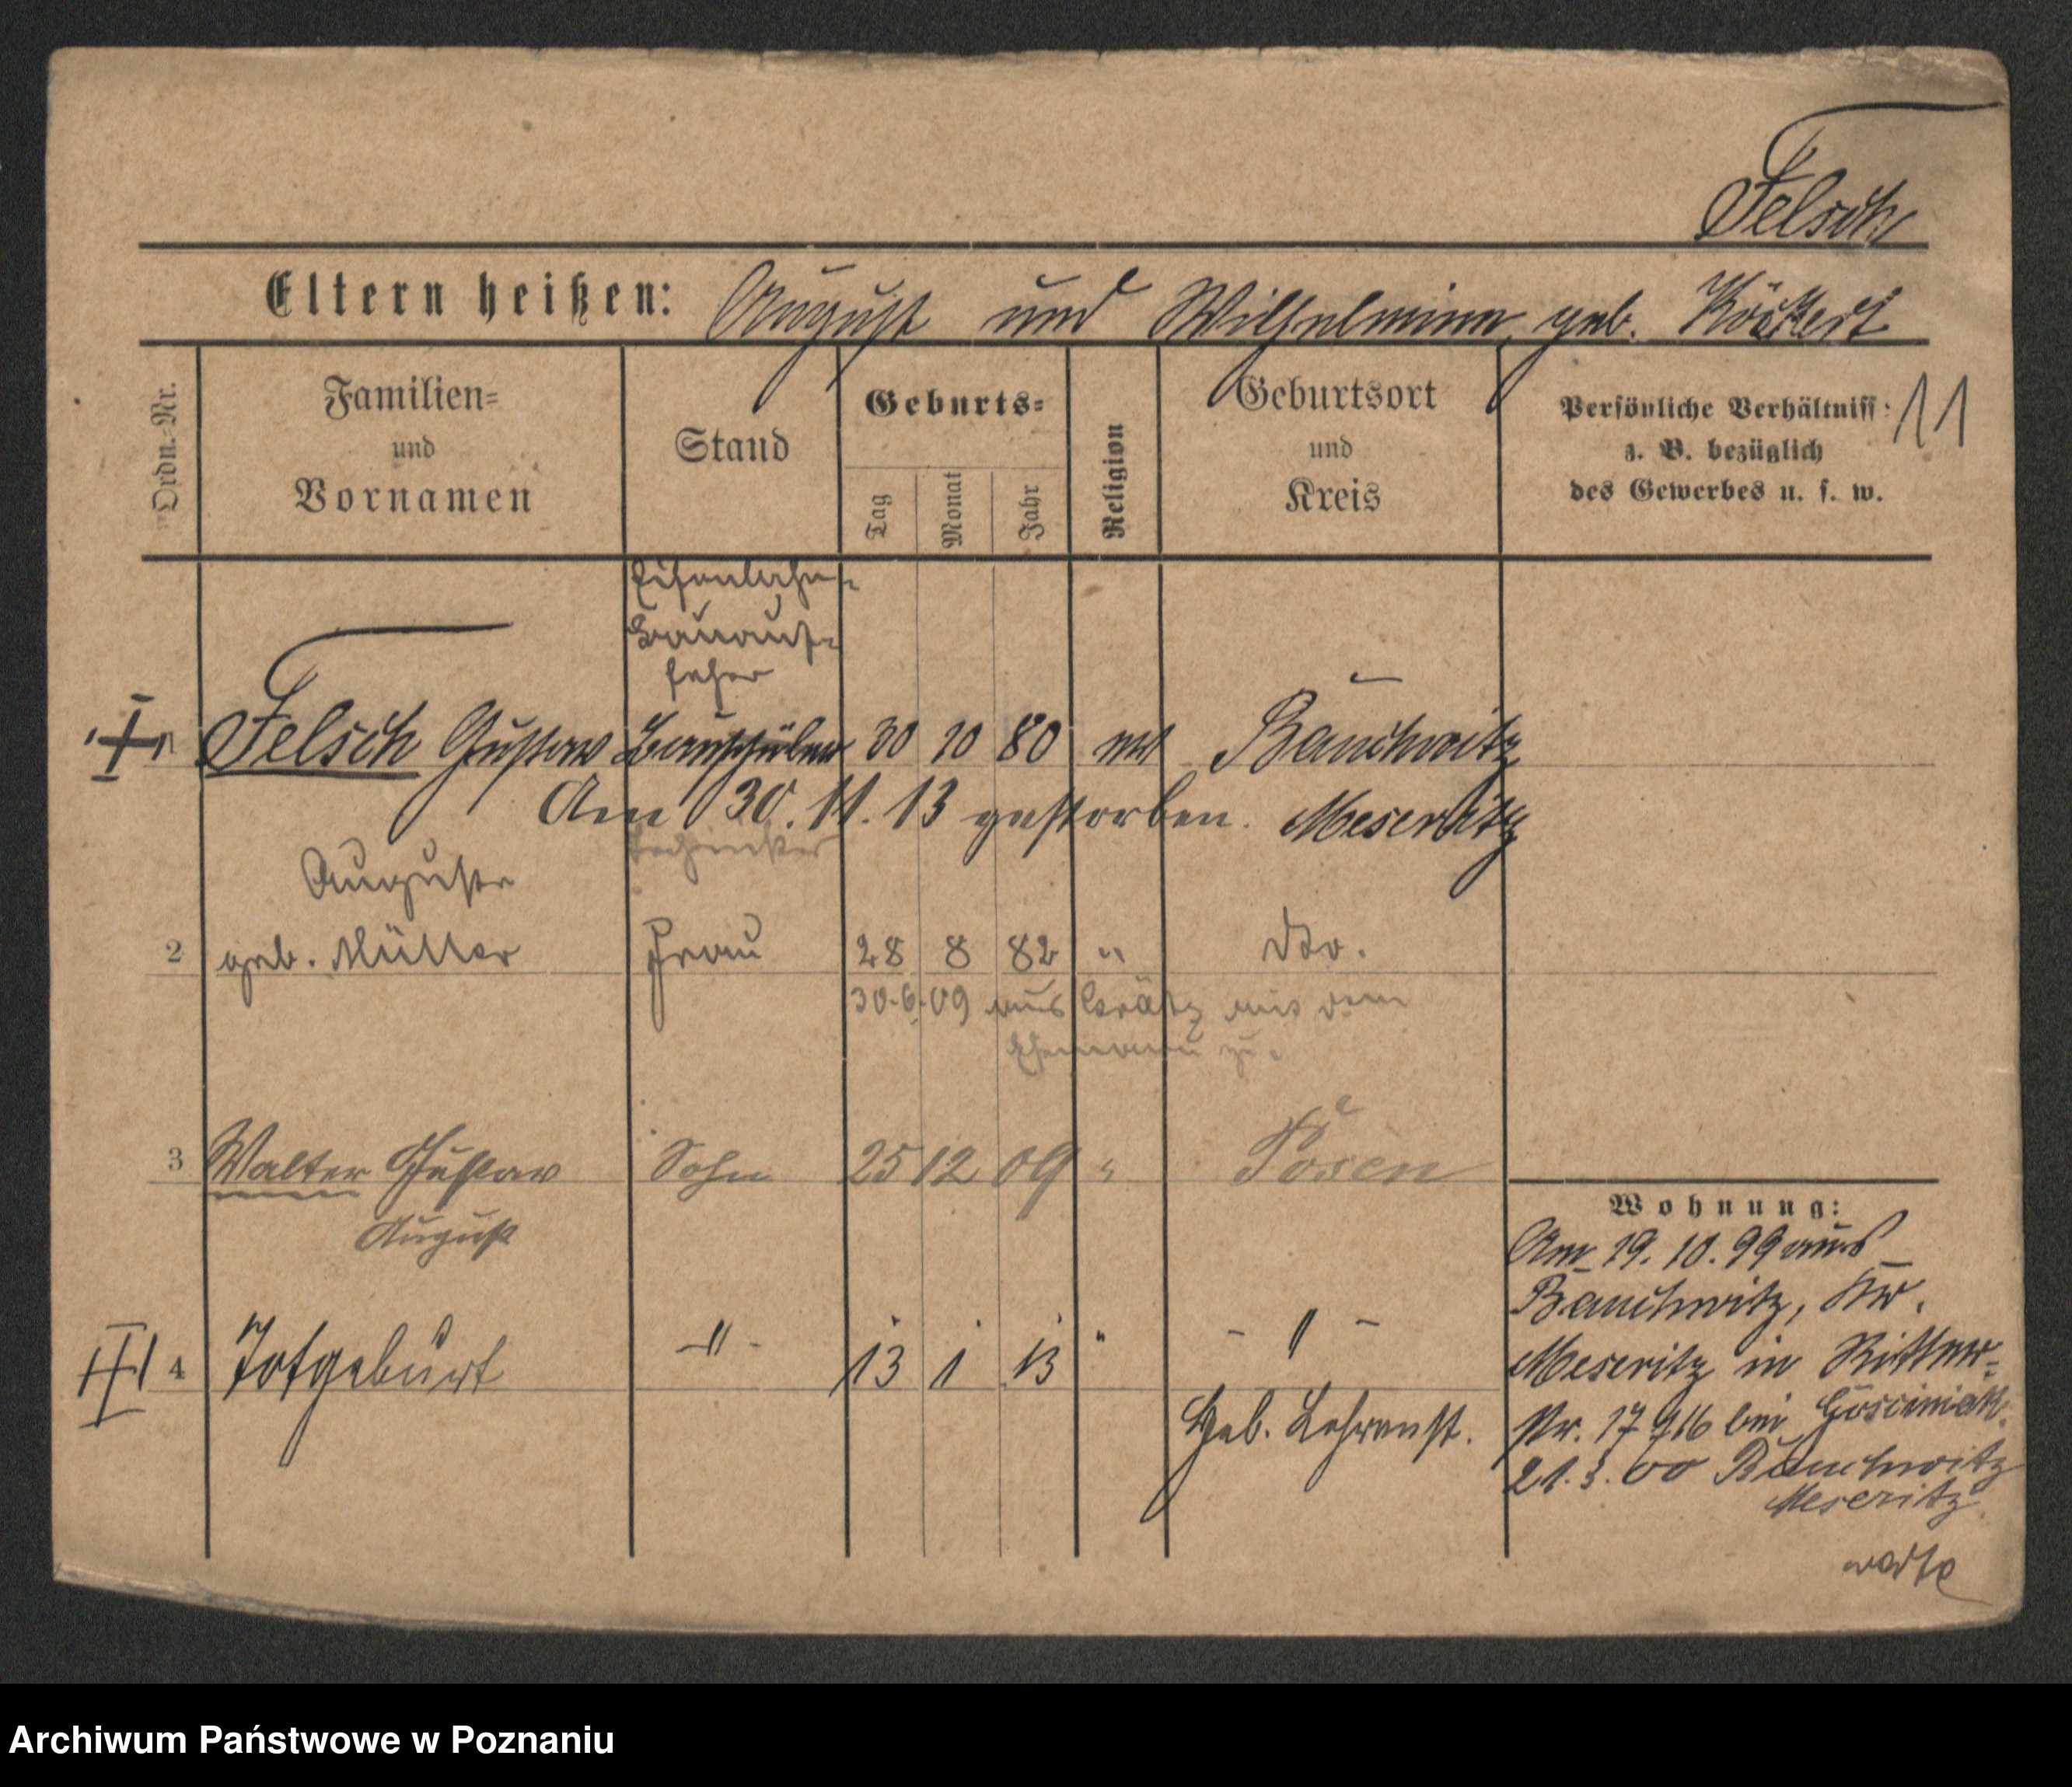 Felsch
Eltern heißen: August und Wilhelmine geb. Köckert
Ordn.-Nr. Familien= und Vornamen Stand Geburts= Tag Monat Jahr Religion Geburtsort und Kreis Persönliche Verhältniss: z. B. bezüglich des Gewerbes u. s. w. 11
Eisenbahn-
Bauauf-
seher
1 Felsch Gustav Bauschüler 30 10 80 Bauchwitz
Am 30.11.13 gestorben. Meseritz
Techniker
Auguste
2 geb. Müller Frau 28 8 82 " dto.
30.6.09 aus Grätz mit dem
Ehemann zu.
3 Walter Gustav Sohn 25 12 09 " Posen
August
4 Totgeburt -"- 13 1 13 " - " -
Geb. Lehranst.
Wohnung:
Am 19.10.99 aus
Bauchwitz, Kr.
Meseritz in Ritter-
Nr. 17 bei Gosciniak.
21.3.00 Bauchwitz
Meseritz.
Archiwum Państwowe w Poznaniu